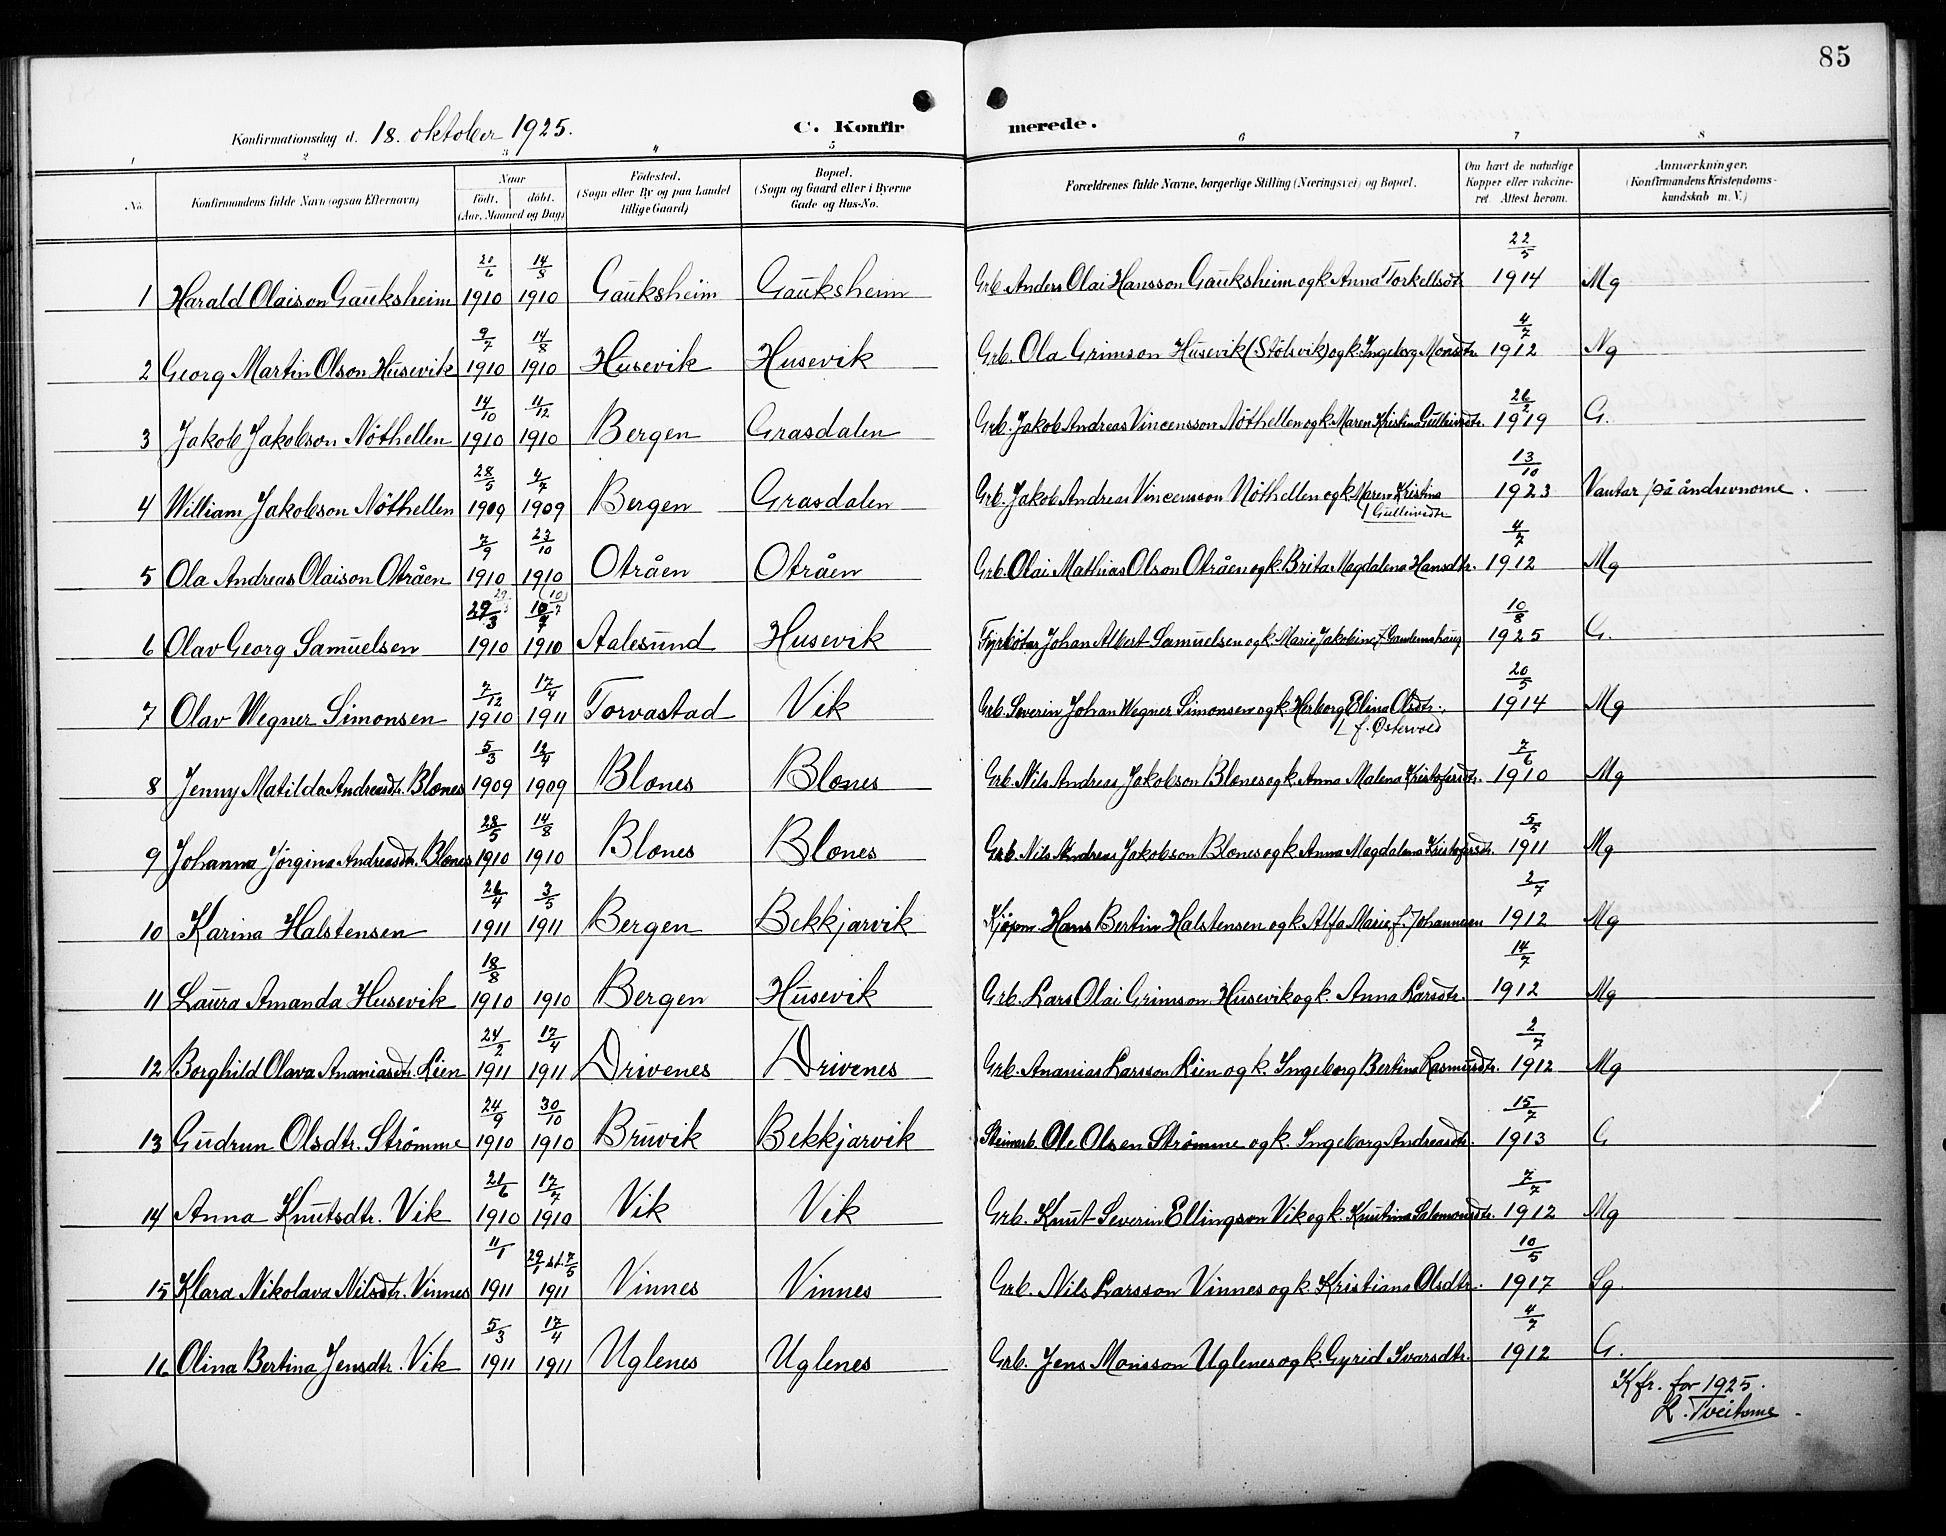 85
Konfirmationsdag d. 18. oktober 1925. C. Konfirmerede.
1 2 3 4 5 6 7 8
No. Konfirmandens fulde Navn (ogsaa Efternavn) Naar født. døbt. (Aar, Maaned og Dag) Fødested. (Sogn eller By og paa Landet tillige Gaard) Bopæl. (Sogn og Gaard eller i Byerne Gade og Hus-No. Forældrenes fulde Navne, borgerlige Stilling (Næringsvei) og Bopæl. Om havt de naturlige Kopper eller vakcineret. Attest herom. Anmærkninger. (Konfirmandens Kristendomskundskab m. V.)
1 Harald Olaison Gauksheim 20/6 1910 14/8 1910 Gauksheim Gauksheim Grb. Anders Olai Hansson Gauksheim og k. Anna Torkellsdtr. 22/5 1914 Mg
2 Georg Martin Olson Husevik 9/7 1910 14/8 1910 Husevik Husevik Grb. Ola Grimson Husevik (Stölsvik) og k. Ingeborg Monsdtr. 4/7 1912 Ng
3 Jakob Jakobson Nöthellen 14/10 1910 11/12 1910 Bergen Grasdalen Grb. Jakob Andreas Vincensson Nöthellen og k. Maren Kristina Gulleivsdtr. 26/2 1919 G.
4 William Jakobson Nöthellen 28/5 1909 4/7 1909 Bergen Grasdalen Grb. Jakob Andreas Vincensson Nöthellen og k. Maren Kristina Gulleivsdtr. 13/10 1923 Vantar på åndsevnorne.
5 Ola Andreas Olaison Otråen 7/9 1910 23/10 1910 Otråen Otråen Grb. Olai Mathias Olson Otråen og k. Brita Magdalena Hansdtr. 4/7 1912 Mg
6 Olav Georg Samuelsen 29/3 1910 10/7 1910 Aalesund Husevik Fyrböter Johan Albert Samuelsen og k. Marie Jakobine f. 10/8 1925 G.
7 Olav Wegner Simonsen 7/12 1910 17/4 1911 Torvastad Vik Grb. Severin Johan Wegner Simonsen og k. Herborg Elina Olsdtr. f. Østervold 20/5 1914 Mg
8 Jenny Matilda Andreasdtr. Blænes 5/3 1909 12/4 1909 Blænes Blænes Grb. Nils Andreas Jakobson Blænes og k. Anna Malena Kristofersdtr. 7/6 1910 Mg
9 Johanna Jörgina Andreasdtr. Blænes 28/5 1910 14/8 1910 Blænes Blænes Grb. Nils Andreas Jakobson Blænes og k. Anna Magdalena Kristofersdtr. 5/5 1911 Mg
10 Karina Halstensen 26/4 1911 3/5 1911 Bergen Bekkjarvik Kjöpm. Hans Bertin Halstensen og k. Alfa Marie, f. Johannesen 2/7 1912 Mg
11 Laura Amanda Husevik 18/8 1910 1910 Bergen Husevik Grb. Lars Olai Grimson Husevik og k. Anna Larsdtr. 14/7 1912 Mg
12 Borghild Olava Ananiasdtr. Lien 24/2 1911 17/4 1911 Drivenes Drivenes Grb. Ananias Larsson Lien og k. Ingeborg Bertina Rasmusdtr. 2/7 1912 Mg
13 Gudrun Olsdtr. Strömme 24/9 1910 30/10 1910 Bruvik Bekkjarvik Steinarb. Ole Olsen Strömme og k. Ingeborg Andreasdtr. 15/7 1913 G
14 Anna Knutsdtr. Vik 21/6 1910 17/7 1910 Vik Vik Grb. Knut Severin Ellingson Vik og k. Knutina Salomonsdtr. 7/7 1912 Mg
15 Klara Nikolava Nilsdtr. Vinnes 11/1 1911 29/1 st. 7/5 1911 Vinnes Vinnes Grb. Nils Larsson Vinnes og k. Kristiana Olsdtr. 10/5 1917 Sg.
16 Olina Bertina Jensdtr. Vik 5/3 1911 17/4 1911 Uglenes Uglenes Grb. Jens Monsson Uglenes og k. Gyrid Ivarsdtr. 4/7 1912 G.
Kfr. for 1925.
L. Tveitane